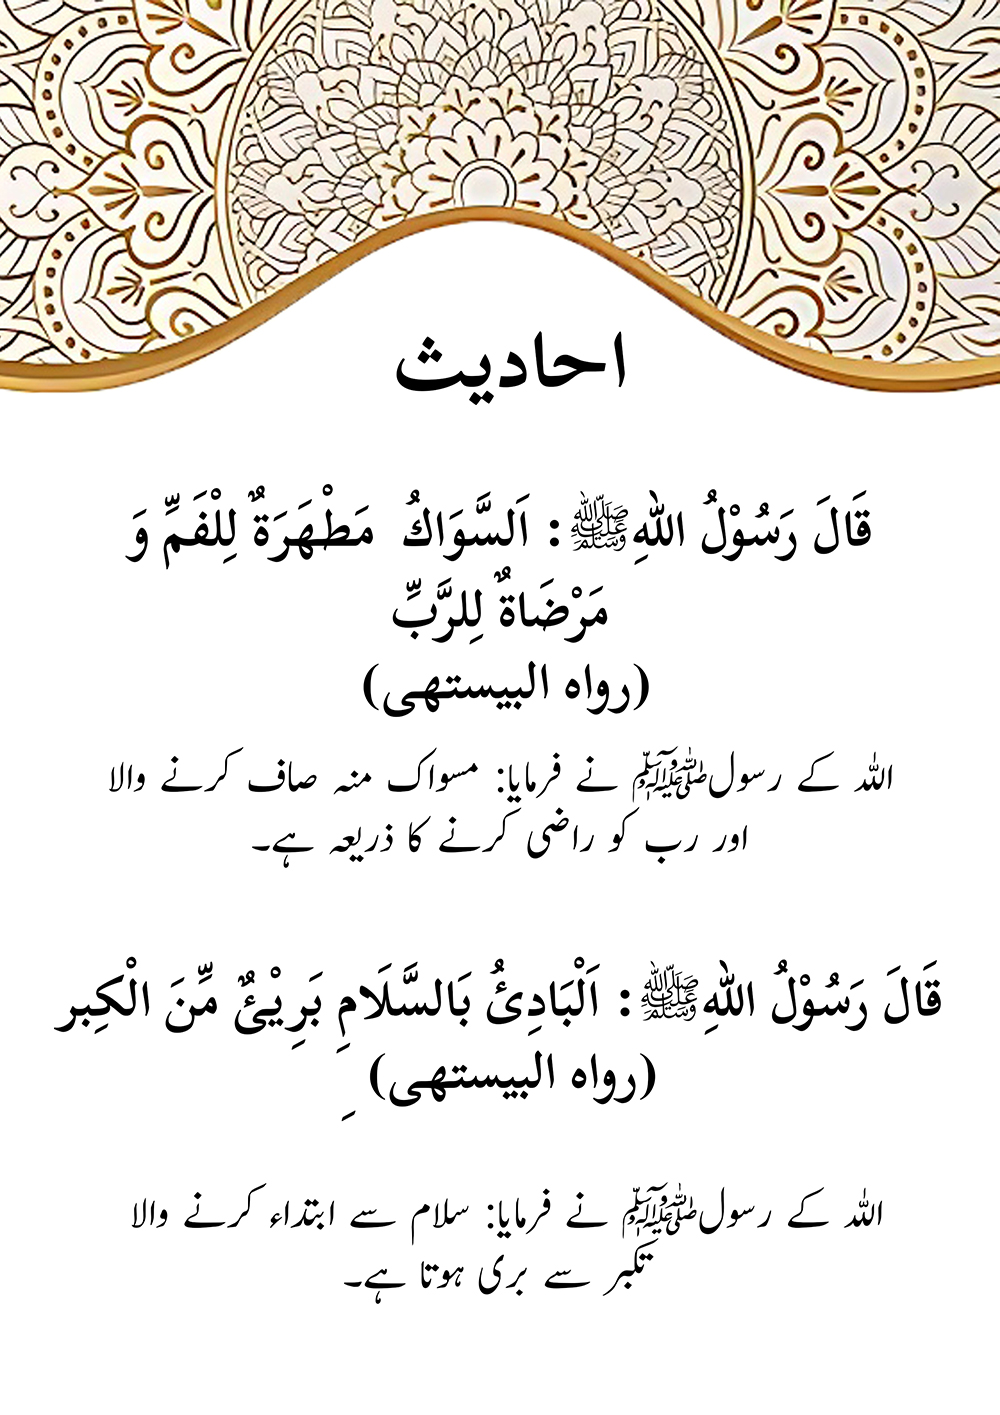 احادیث
قَالَ رَسُوْلُ اللهِﷺ: اَلسَّوَاكُ مَطْهَرَةٌ لِلْفَمِّ وَ
مَرْضَاةٌ لِلرَّبِّ
(رواہ البیستھی)
اللہ کے رسولﷺ نے فرمایا: مسواک منہ صاف کرنے والا
اور رب کو راضی کرنے کا ذریعہ ہے۔
قَالَ رَسُوْلُ اللهِﷺ: اَلْبَادِئُ بَالسَّلَامِ بَرِیْئٌ مِّنَ الْكِبر
(رواہ البیستھی) ِ
اللہ کے رسولﷺ نے فرمایا: سلام سے ابتداء کرنے والا
تکبر سے بری ہوتا ہے۔